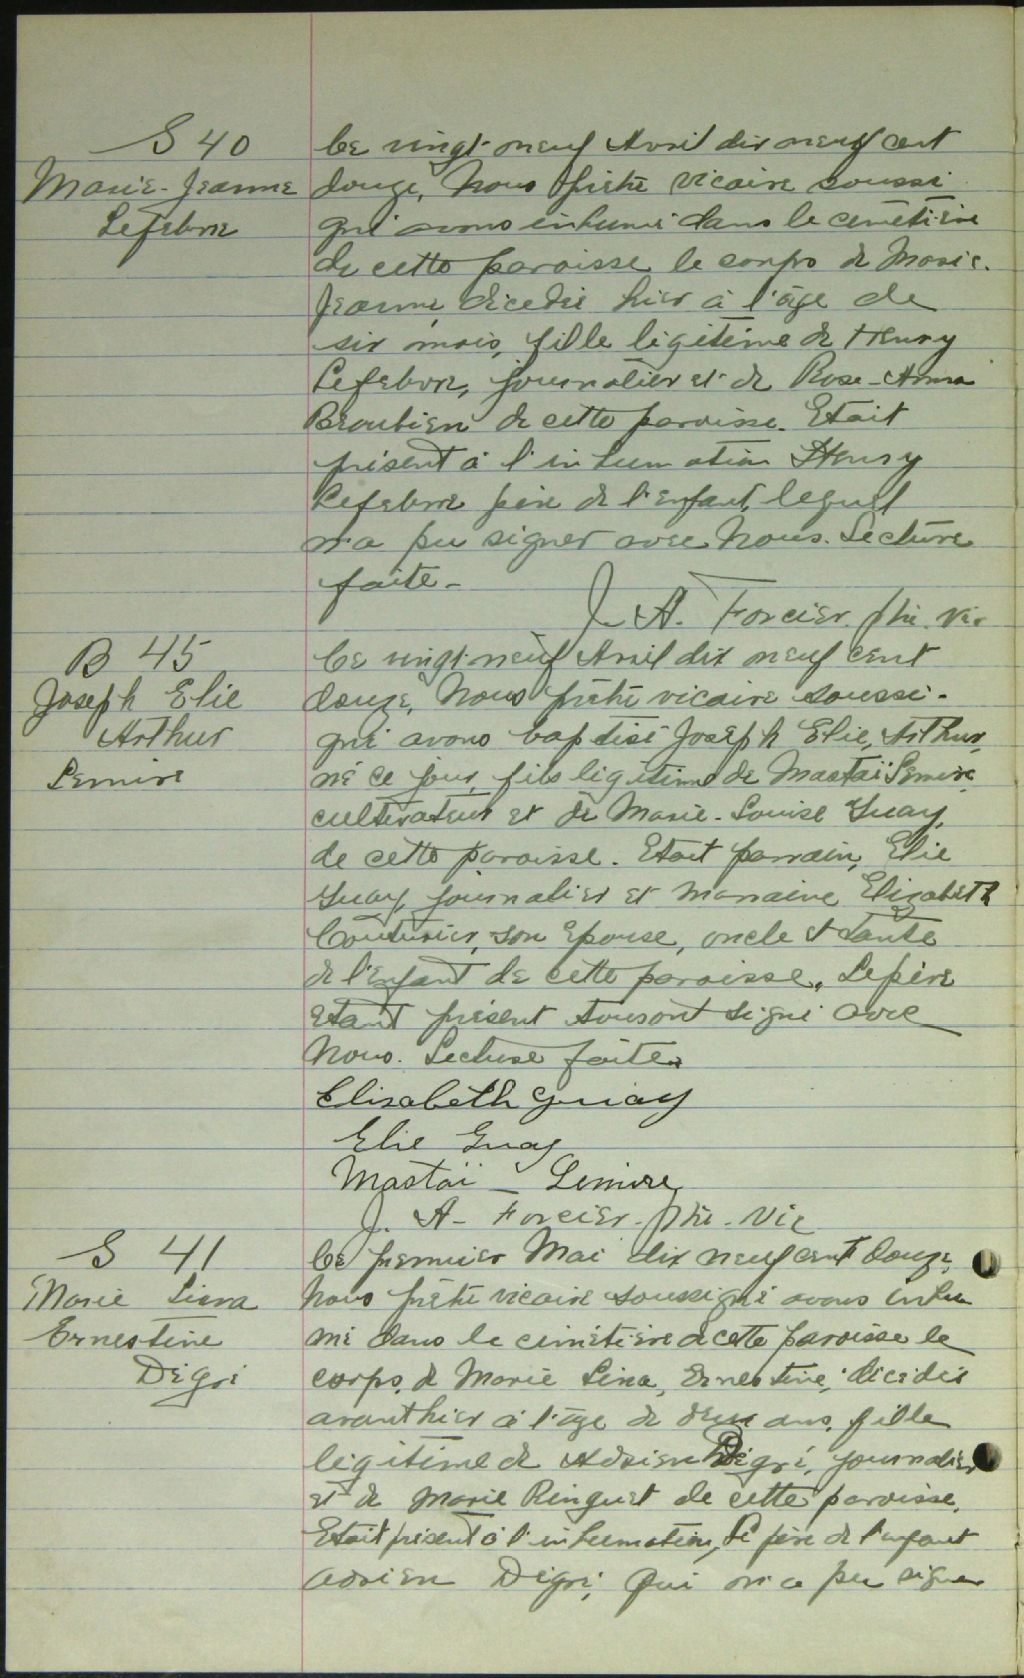 S 40
Marie-Jeanne
Lefebvre
Ce vingt-neuf Avril dix neuf cent
douze, Nous prêtre vicaire soussi
gné avons inhumé dans le cimetière
de cette paroisse le corps de Marie-
Jeanne, décédée hier à l'âge de
six mois, fille légitime de Henry
Lefebvre, journalier et de Rose-Anna
Beaubien de cette paroisse. Etait
présent à l'inhumation Henry
Lefebvre père de l'enfant, lequel
n'a pu signer avec Nous. Lecture
faite-
J. A. Forcier. ptre. Vic
B 45
Joseph Elie
Arthur
Lemire
Ce vingt-neuf Avril dix neuf cent
douze, Nous prêtre vicaire soussi-
gné avons baptisé Joseph Elie, Arthur,
né ce jour, fils légitime de Mastaï Lemire,
cultivateur et de Marie-Louise Guay,
de cette paroisse. Etait parrain, Elie
Guay, journalier et marraine Elizabeth
Couturier, son épouse, oncle et tante
de l'enfant de cette paroisse. Le père
étant présent tous ont signé avec
Nous. Lecture faite.
Elisabeth Guay
Elie Guay
Mastaï - Lemire
J. A- Forcier. ptre. Vic
S 41
Marie Liana
Ernestine
Dégré
Ce premier Mai dix neuf cent douze,
Nous prêtre vicaire soussigné avons inhu
mé dans le cimetière de cette paroisse le
corps de Marie Lina, Ernestine, décédée
avant hier à l'âge de deux ans, fille
légitime de Adrien Dégré, journalier
et de Marie Ringuet de cette paroisse.
Etait présent à l'inhumation, le père de l'enfant
Adrien Dégré, qui n'a pu signer